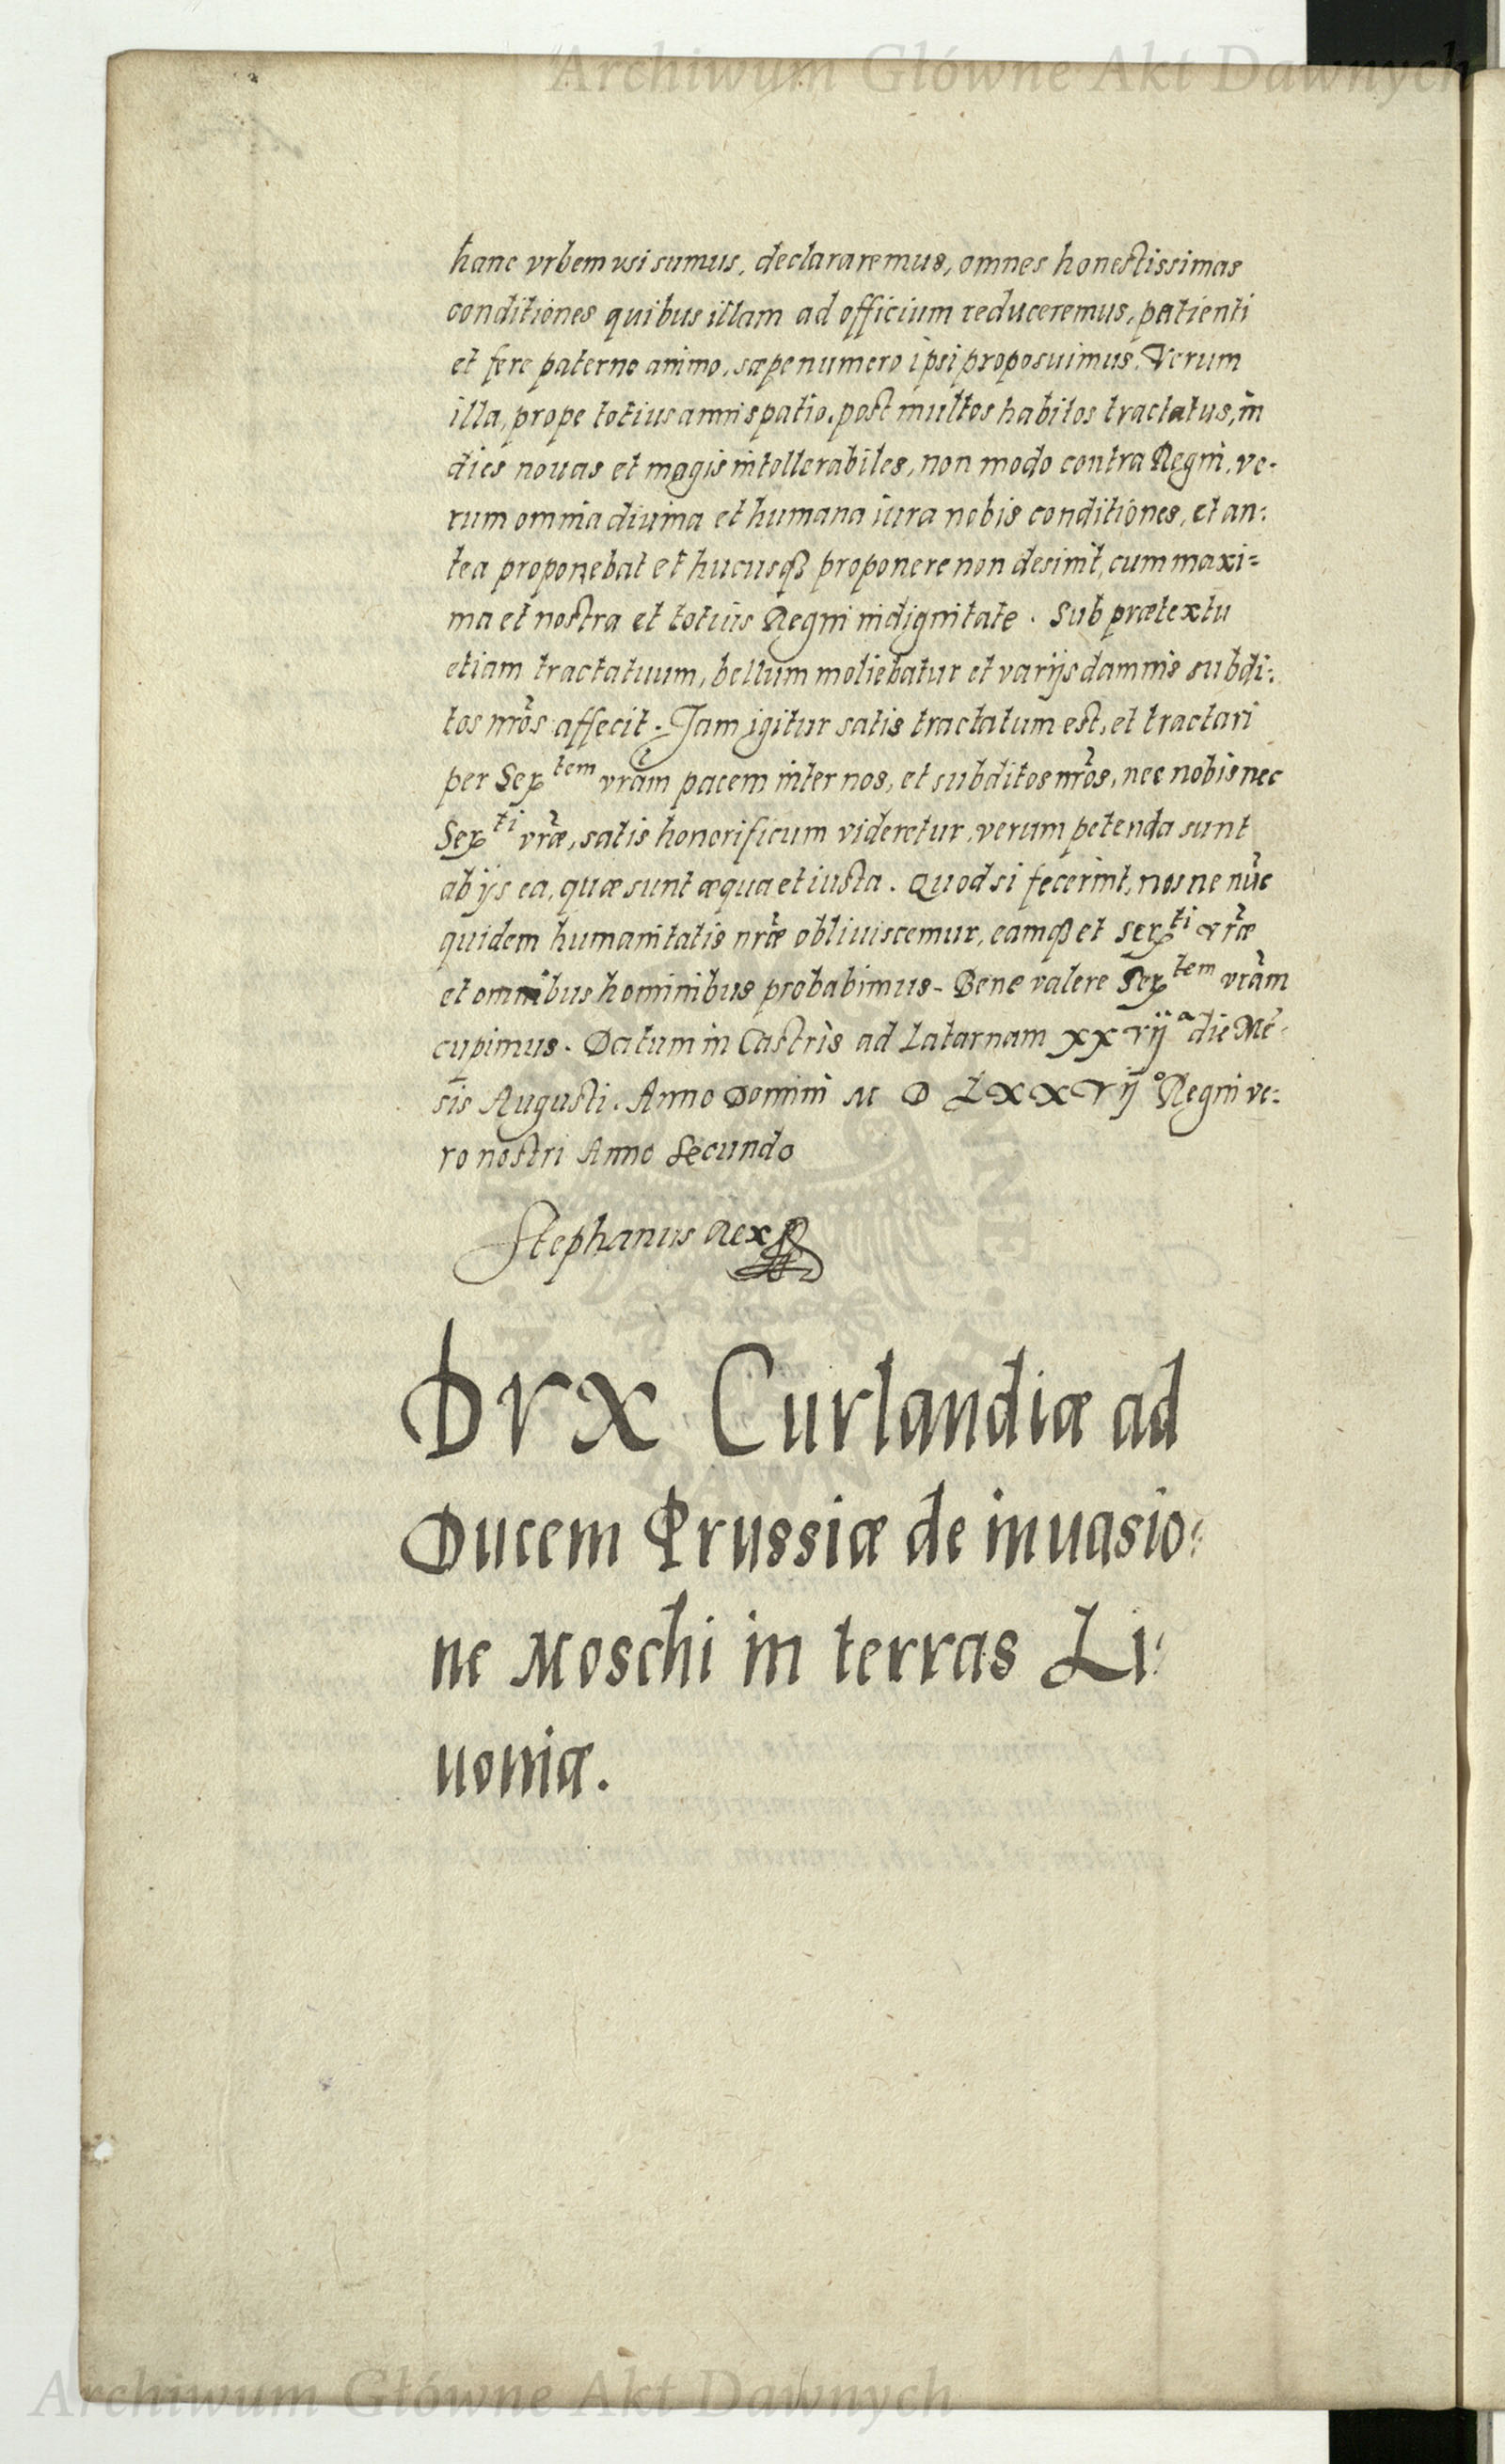 Archiwum Główne Akt Dawnych
hanc vrbem vsi sumus, declararemus, omnes honestissimas
conditiones quibus illam ad officium reduceremus, patienti
et fere paterno animo, sæpenumero ipsi proposuimus. Verum
illa, prope totius anni spatio, post multos habitos tractatus, in
dies nouas et magis intollerabiles, non modo contra Regni, ve-
rum omnia diuina et humana iura nobis conditiones, et an:
tea proponebat et hucusqȝ proponere non desinit, cum maxi=
ma et nostra et totius Regni indignitate. Sub prætextu
etiam tractatuum, bellum moliebatur et varijs damnis subdi:
tos nr̃os affecit. Jam igitur satis tractatum est, et tractari
per Ser^tem vr̃am pacem inter nos, et subditos nr̃os, nec nobis nec
Ser^ti vr̃æ, satis honorificum videretur, verum petenda sunt
ab ijs ea, quæ sunt æqua et iusta. Quod si fecerint, nos ne nũc
quidem humanitatis nr̃æ obliuiscemur, eamqȝ et Ser^ti vr̃æ
et omnibus hominibus probabimus. Bene valere Ser^tem vr̃am
cupimus. Datum in Castris ad Latarnam XXVij^a die Mẽ-
sis Augusti. Anno Domini M D LXXVij^o Regni ve:
ro nostri Anno Secundo
Stephanus Rex
DVX Curlandiæ ad
Ducem Prussiæ de inuasio:
ne Moschi in terras Li:
uoniæ.
Archiwum Główne Akt Dawnych